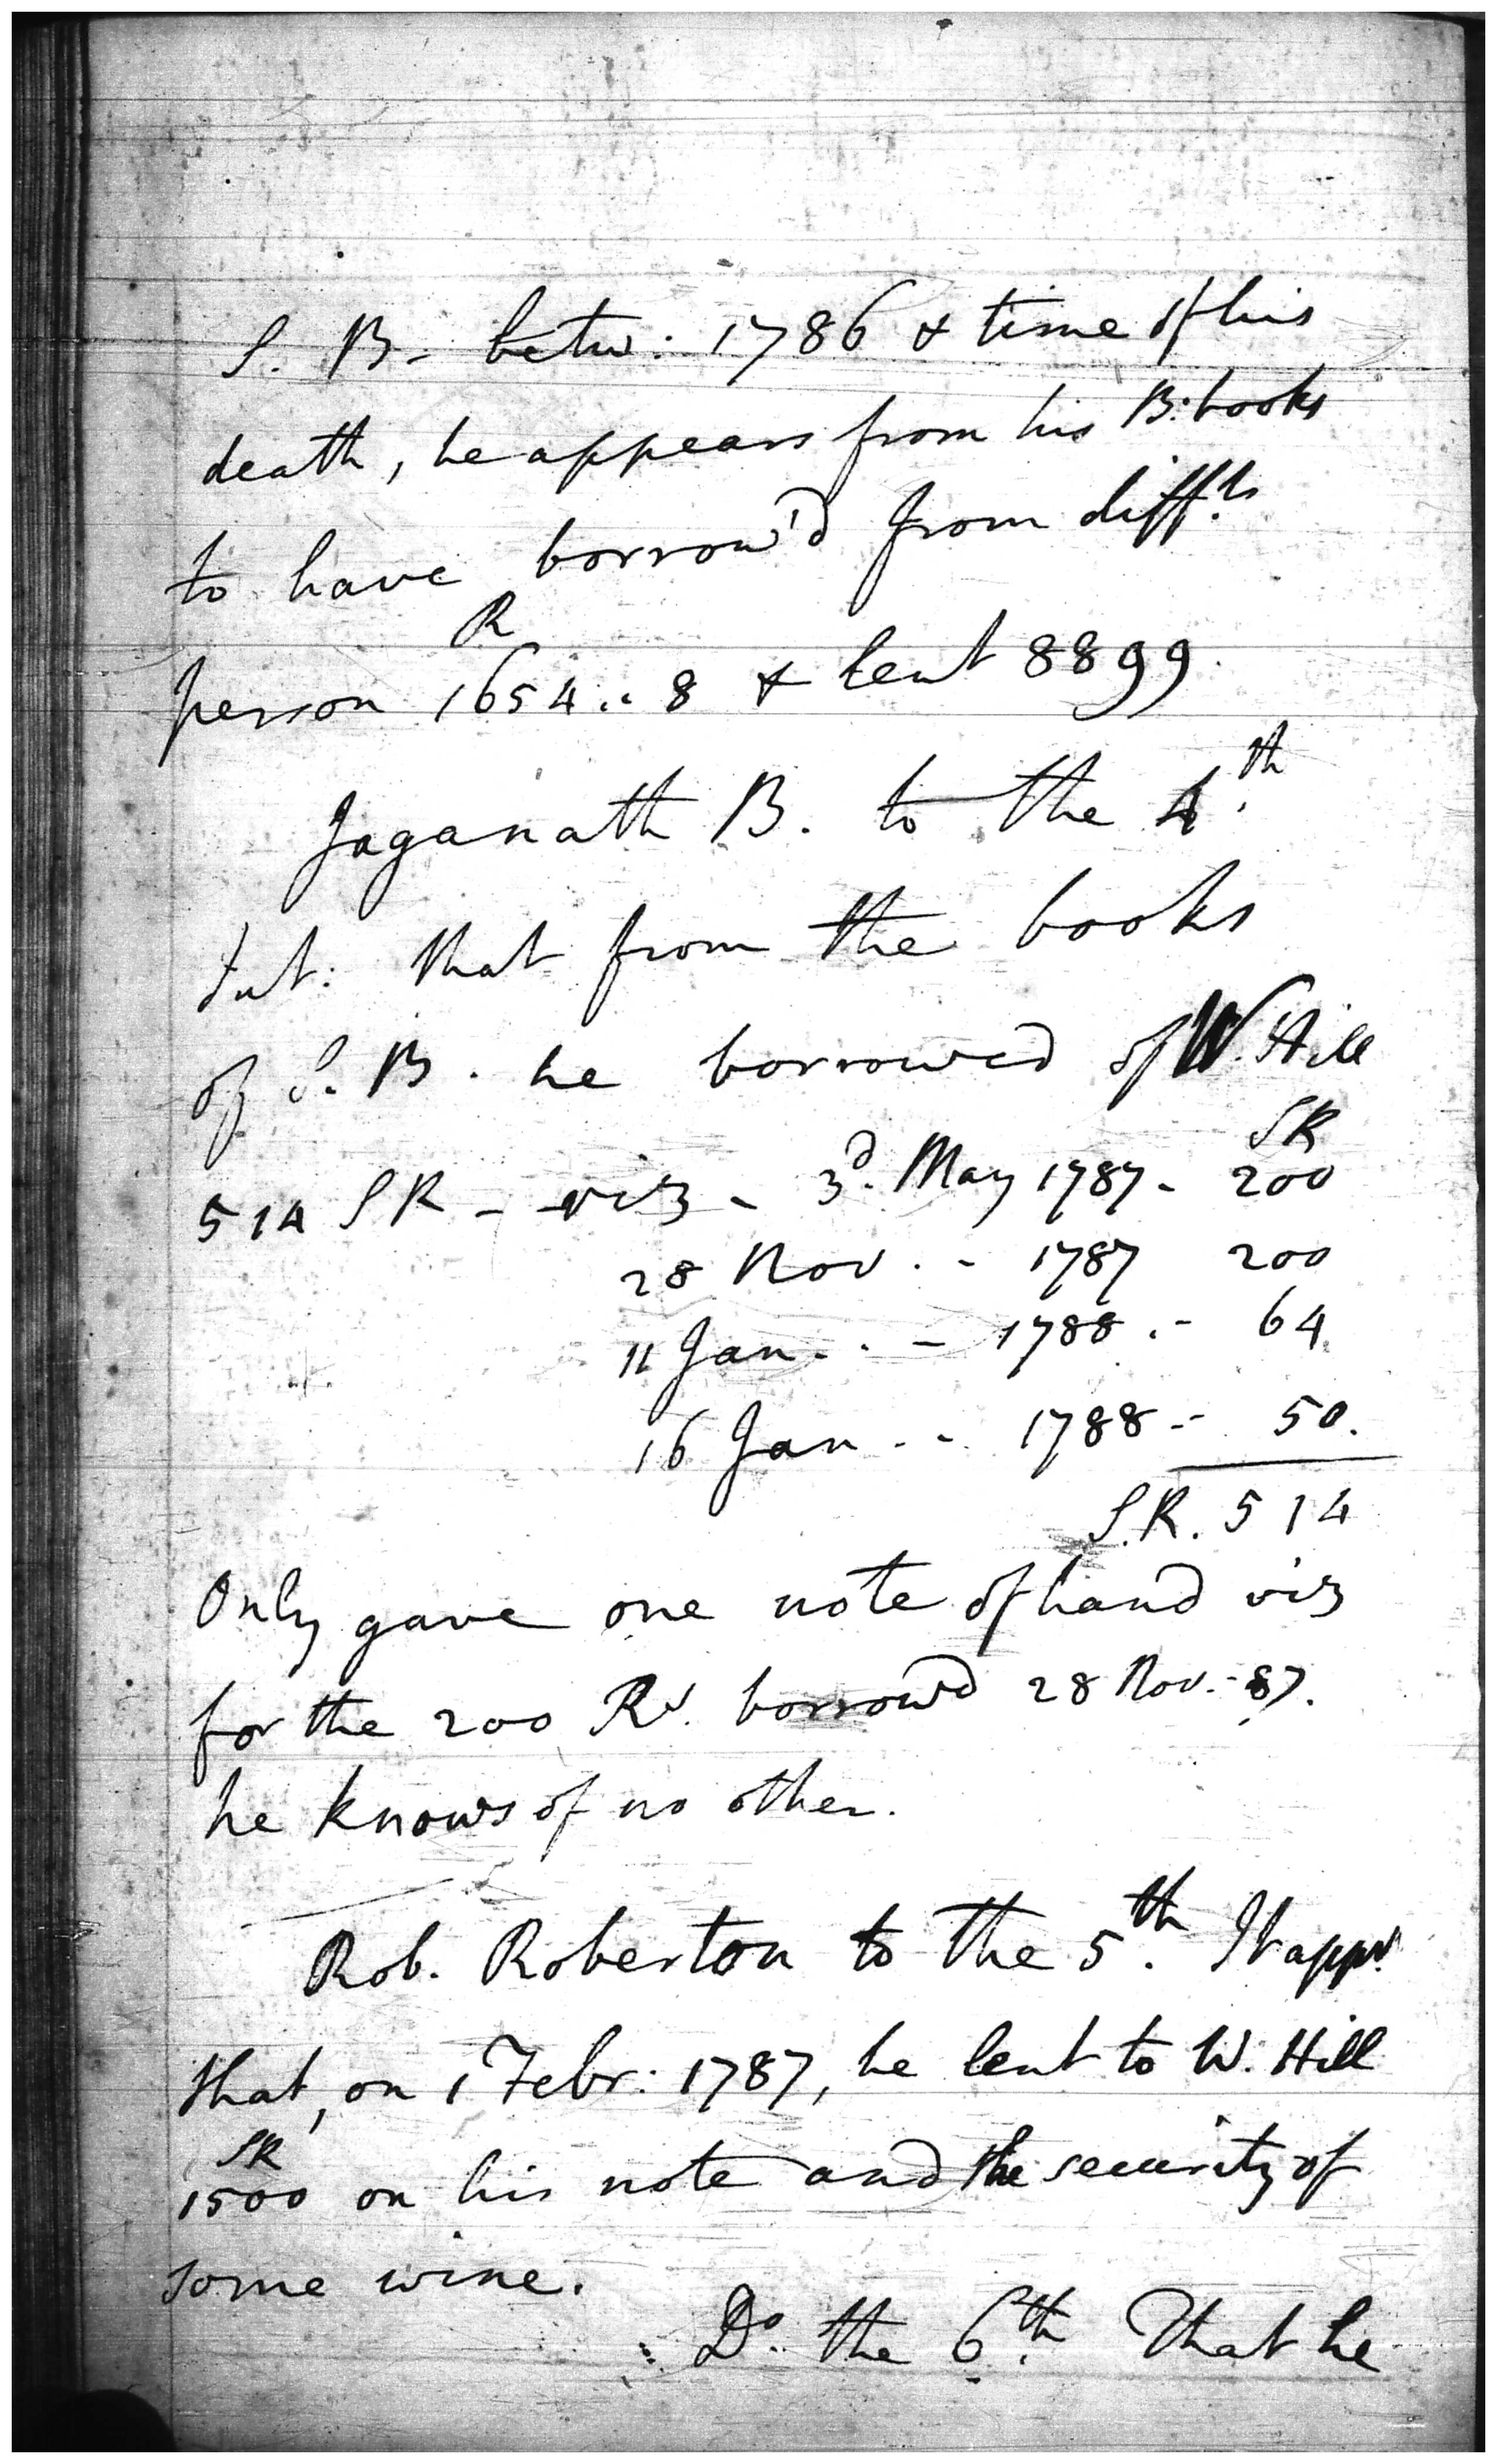 S. B- betw: 1786 & time of his
death, he appears from his B: books
to have borrow'd from diff.ts
R
person 1654.. 8 & lent 8899.
Jaganath B. to the 4.th
Int: that from the books
of S. B. he borrowed of W. Hill
SR
514 SR - viz - 3d. May 1787 - 200
28 Nov. - 1787 200
11 Jan. . - 1788 .- 64
16 Jan - - 1788 -- 50.
S.R. 514
Only gave one note of hand viz
for the 200 Rs. borrowd 28 Nov. - 87.
he knows of no other.
Rob. Roberton to the 5th. It apprs.
that, on 1 Febr: 1787, he lent to W. Hill
SR
1500 on his note and the security of
some wine.
: Do. the 6th. That he